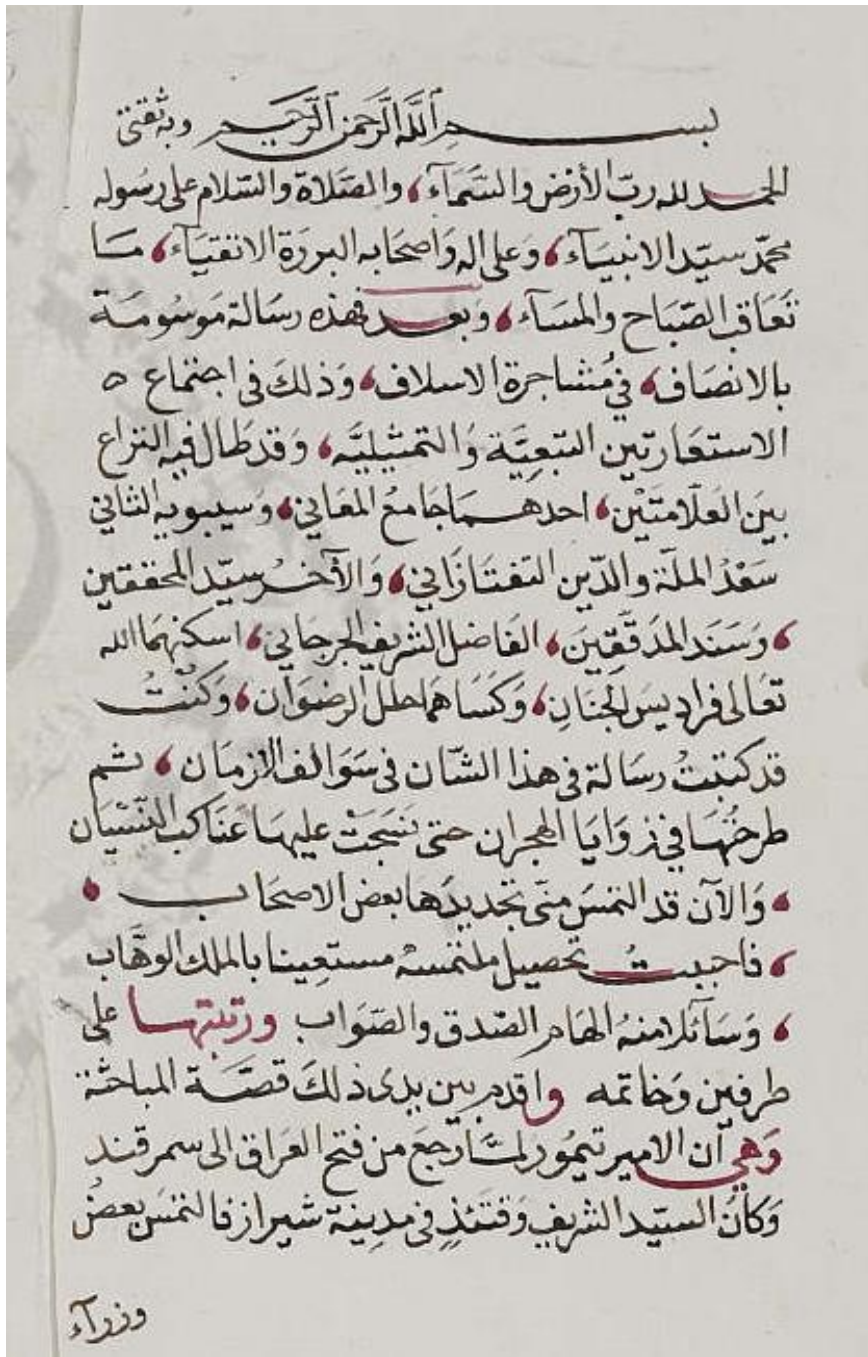 بسم الله الرحمن الرحيم وبه ثقتي
الحمد لله رب الأرض والسَّمَآء، والصَّلاة والسّلام على رسُوله
محمّد سيّد الانبيَآء، وَعلى اله وَاصحَابه البررَة الاتقيَآء، مَا
تعَاقب الصّبَاح والمسَآء، وَبعد فهذه رسَالة مَوسُومَة
بالانصَاف، في مُشاجرة الاسلاف، وَذلكَ في اجتمَاع ه
الاستعَارتين التبعِيَّة وَالتمثيليَّه، وَقد طَال فيه النزاع
بينَ العَلّامتَيْن، احدهمَا جَامعُ المعَاني، وَسيبويه الثاني
سَعْدُ الملّة والدّين التفتَازَاني، وَالآخر سيّد المحققين
، وَسَنَد المدَقّقِينَ، الفَاضل الشريف الجرجَاني، اسكنهمَا الله
تعَالى فراديسَ الجنَانِ، وَكسَاهمَا حلل الرضوَان، وَكنْتُ
قد كتبتُ رسَالة في هذا الشّان في سَوَالف الازمَان، ثم
طرحتُهَا في زوَايَا الهجران حتى نسَجَتْ عليهَا عَنَاكب النّسْيَان
، وَالآن قد التمسَ منّي تجديدَهَا بعض الاصحَاب ،
، فاجبتُ تحصيل ملتمسه مستعِينا بالملك الوهَّاب
، وَسَآئلا منهُ الهَام الصّدق والصّوَاب ورتبتها على
طرفين وَخاتمه واقدم بين يدى ذلكَ قصّة المباحثة
وَهي اَن الامير تيمُور لمَّا رَجعَ من فتح العرَاق الى سمرقند
وَكانَ السيّد الشريف وَقتَئذٍ في مدِينة شيراز فالتمسَ بعضُ
وزرآء